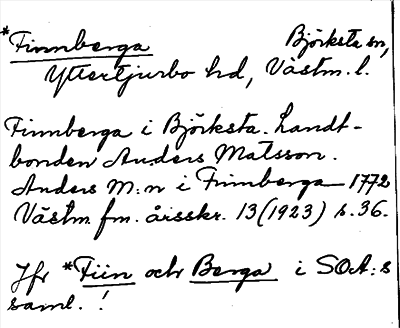 *Finnberga Björksta sn,
Yttertjurbo hd, Västm. l.
Finnberga i Björksta. Landt-
bonden Anders Matsson.
Anders M:n i Finnberga 1772
Västm. fm. årsskr. 13 (1923) s. 36.
Jfr *Fiin och Berga i SOA:s
saml.!